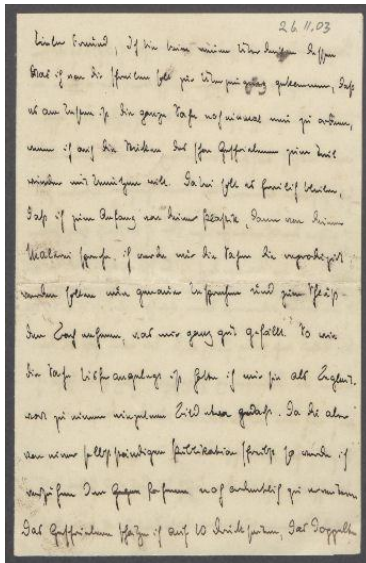 26.11.03
Lieber Freund, Ich bin beim neuen Überdenken dessen
was ich von dir schreiben soll zur Überzeugung gekommen, daß
es am besten ist die ganze Sache noch einmal neu zu ordnen,
wenn ich auch die Stücke des schon Geschriebenen zum Teil
wieder mit benützen will. Dabei soll es freilich bleiben,
daß ich zum Anfang von deiner Plastik, dann von deiner
Malerei spreche, ich werde nur die Sachen die reproduziert
werden sollen genauer besprechen und zum Schluß
den nehmen, was mir ganz gut gefällt. So wie
die Sache bisher angelegt ist hatte ich mir sie als Begleit-
wort zu einem einzelnen Bild gedacht. Da du aber
von einer selbstständigen Publikation schreibst so werde ich
versuchen den ganzen noch ordentlich zu erweitern.
Das Geschriebene schätze ich auf 10 Druckseiten, das Doppelte